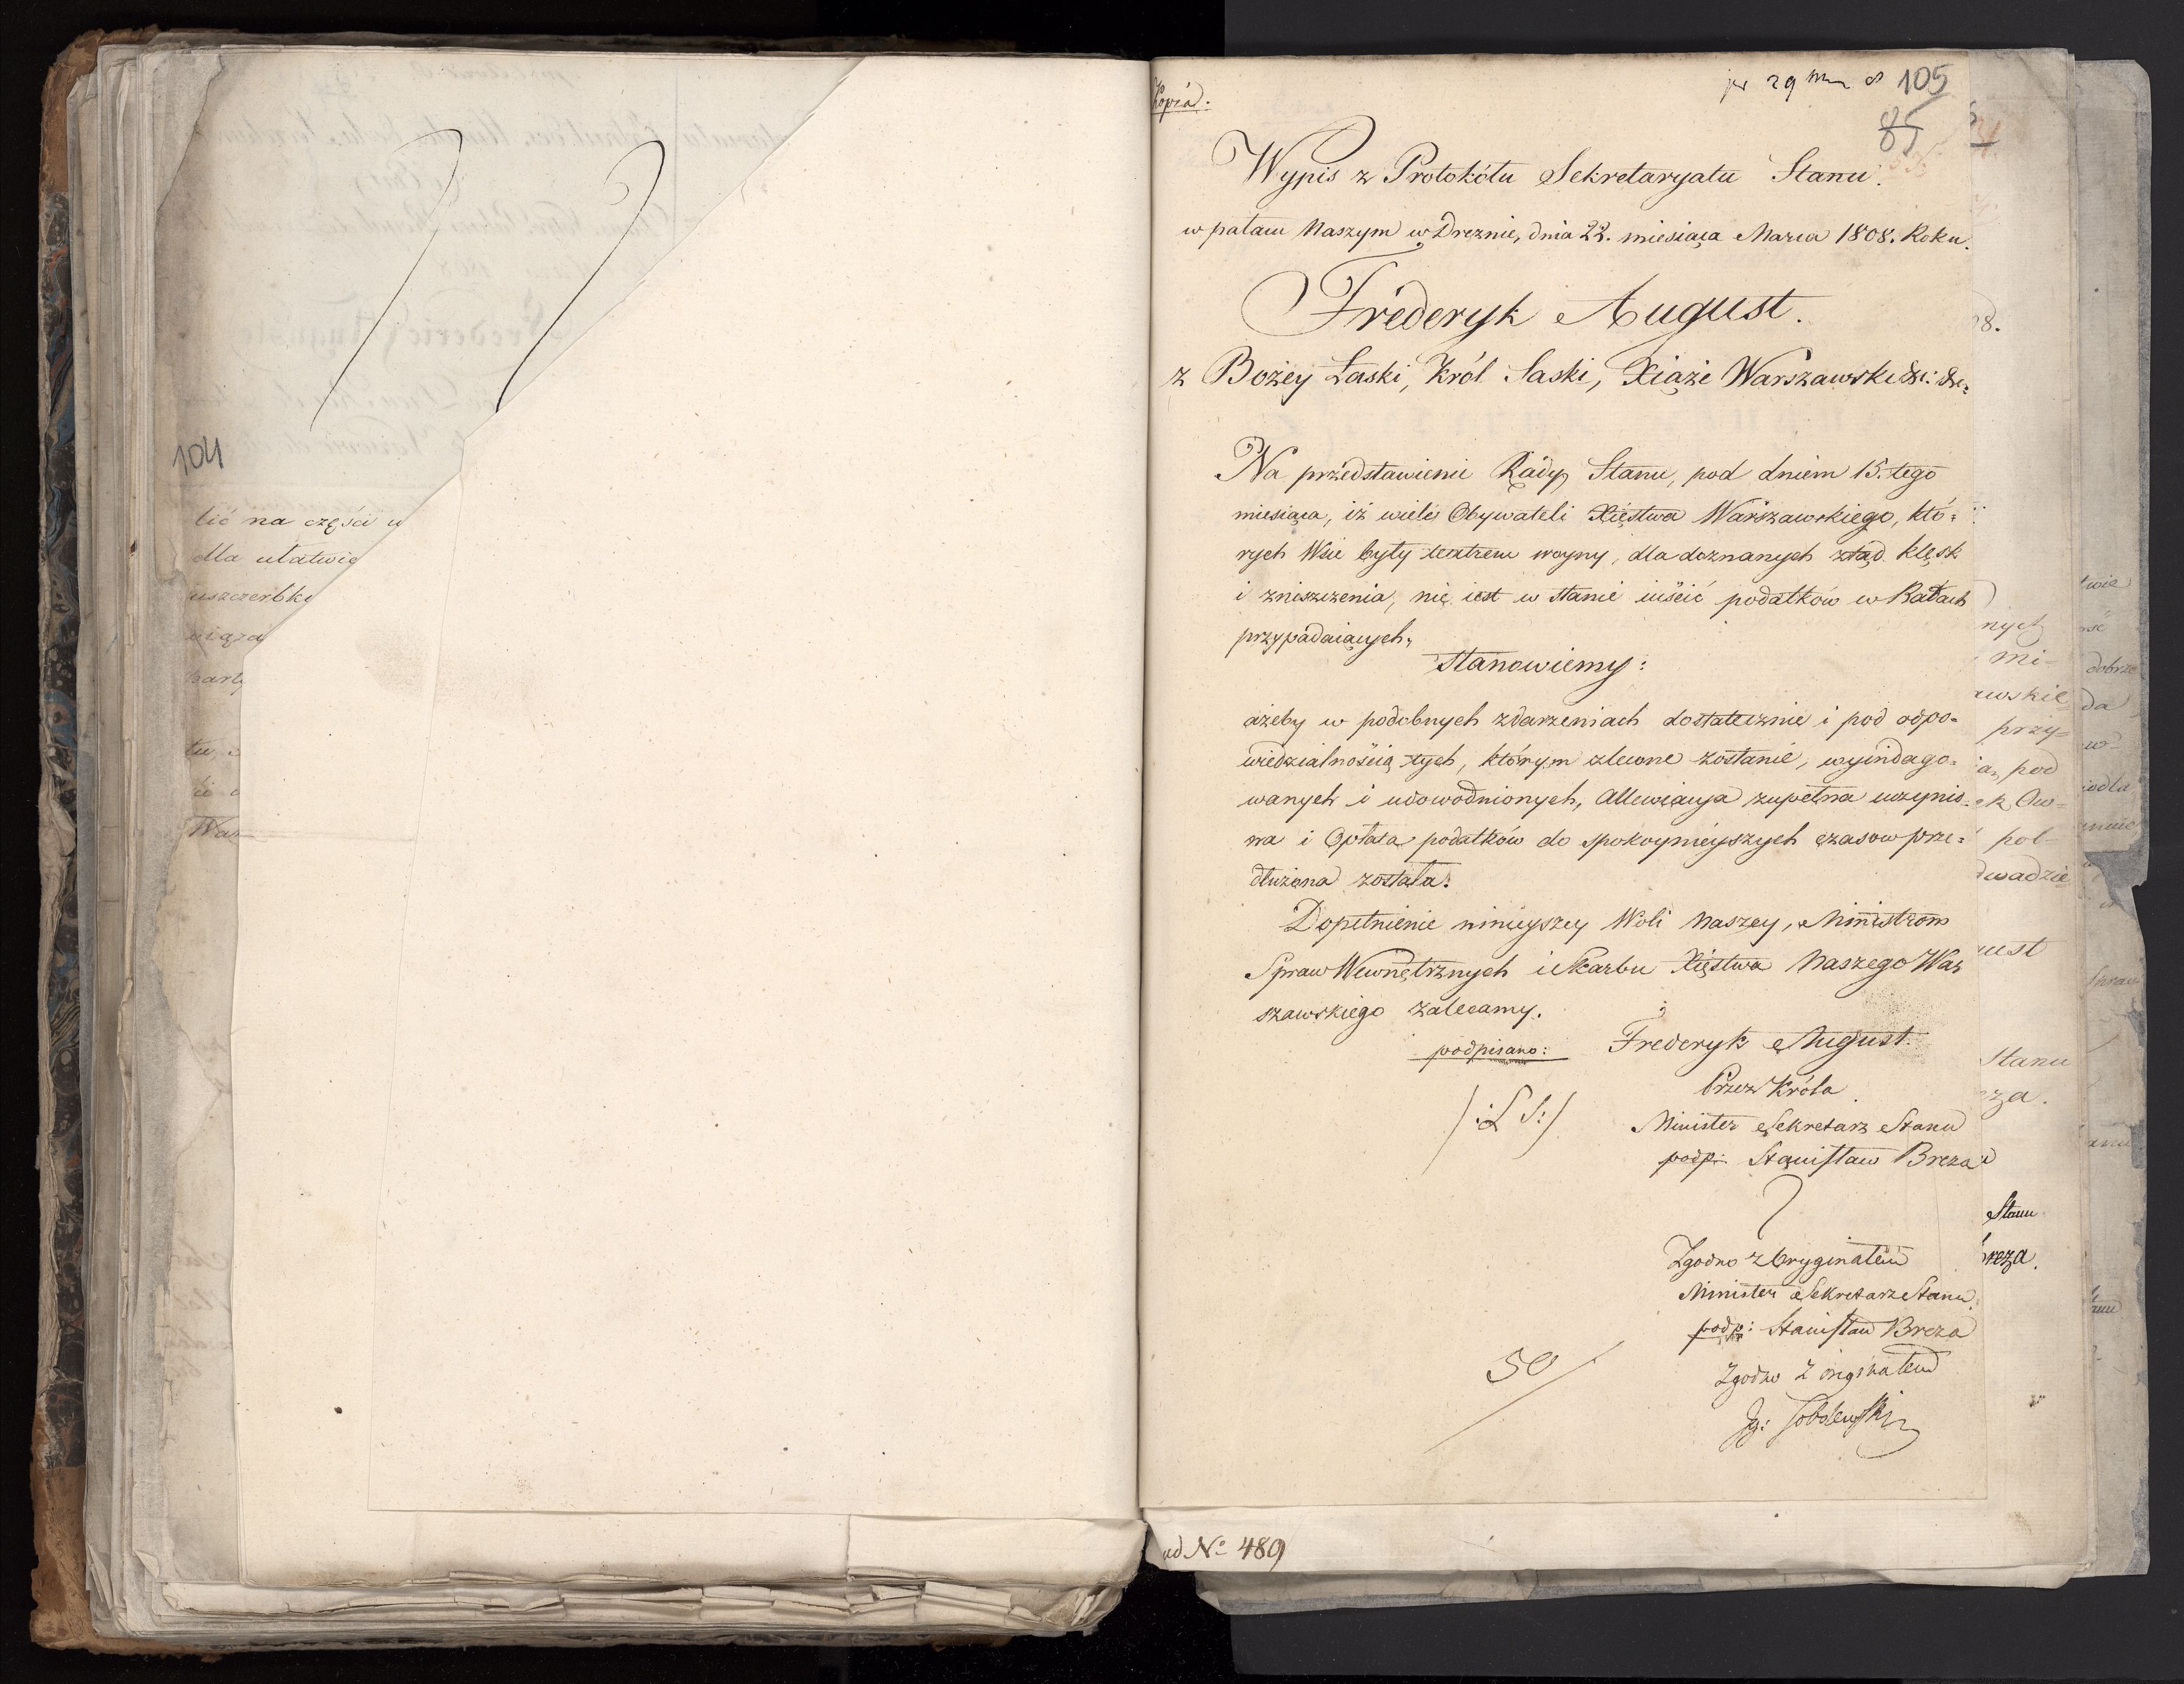 104
tić na części w
dla ułatwie
uszczerbku
wiąza
kart
Kopia.
pr 29 8
105
85
Wypis z Protokółu Sekretaryatu Stanu.
w pałacu Naszym w Dreznie, dnia 22. miesiąca Marca 1808. Roku.
Fréderyk August.
z Bożey Łaski, Król Saski, Xiąże Warszawski &c: &c:
Na przedstawienie Rady Stanu, pod dniem 15. tego
miesiąca, iż wiele Obywateli Xięstwa Warszawskiego, któ=
rych Wsie były teatrem woyny, dla doznanych ztąd klęsk
i zniszczenia, nie iest w stanie iuścić podatków w Ratach
przypadaiących,
Stanowiemy:
ażeby w podobnych zdarzeniach dostatecznie i pod odpo=
wiedzialnością tych, którym zlecone zostanie, wyindago=
wanych i udowodnionych, Allewiacya zupełna uczynio=
na i Opłata podatków do spokoynieyszych czasow prze=
dłużona została.
Dopełnienie ninieyszey Woli Naszey, Ministrom
Spraw Wewnętrznych i Skarbu Xięstwa Naszego War
szawskiego zalecamy.
podpisano: Frederyk August.
Przez Króla
/:L S:/
Minister Sekretarz Stanu
podp: Stanisław Breza
Zgodno z Oryginałem
Minister Sekretarz Stanu
podp: Stanisław Breza
50
Zgodno z originałem
Ig: Sobolewski
ad No 489
08.
nych
mi=
awskie
przy=
pod
pol=
dwadzie
ust
Stanu
za.
Stanu
Breza.
dobrze
da
w=
Spraw